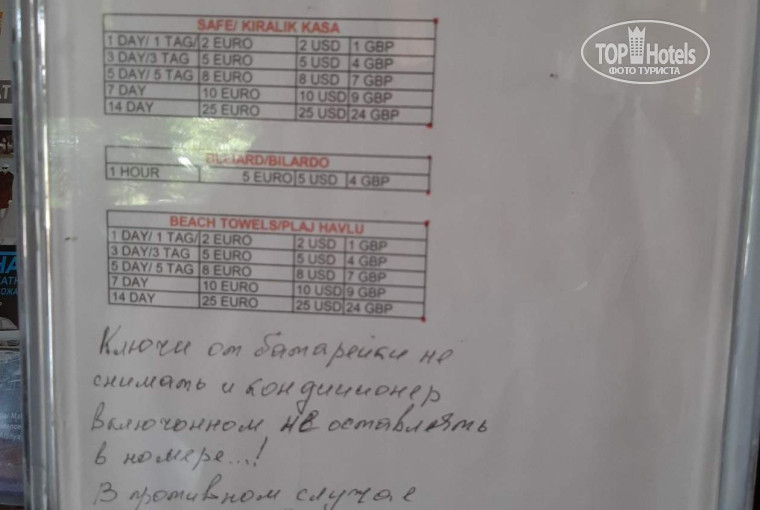 TOP Hotels
ФОТО ТУРИСТА
SAFE/ KIRALIK KASA
1 DAY/ 1 TAG/ 2 EURO 2 USD 1 GBP
3 DAY/3 TAG 5 EURO 5 USD 4 GBP
5 DAY/ 5 TAG 8 EURO 8 USD 7 GBP
7 DAY 10 EURO 10 USD 9 GBP
14 DAY 25 EURO 25 USD 24 GBP
BILLIARD/BILARDO
1 HOUR 5 EURO 5 USD 4 GBP
BEACH TOWELS/PLAJ HAVLU
1 DAY/ 1 TAG/ 2 EURO 2 USD 1 GBP
3 DAY/3 TAG 5 EURO 5 USD 4 GBP
5 DAY/ 5 TAG 8 EURO 8 USD 7 GBP
7 DAY 10 EURO 10 USD 9 GBP
14 DAY 25 EURO 25 USD 24 GBP
Ключи от батарейки не
снимать и кондиционер
включонном не оставлять
в номере...!
В противном случае